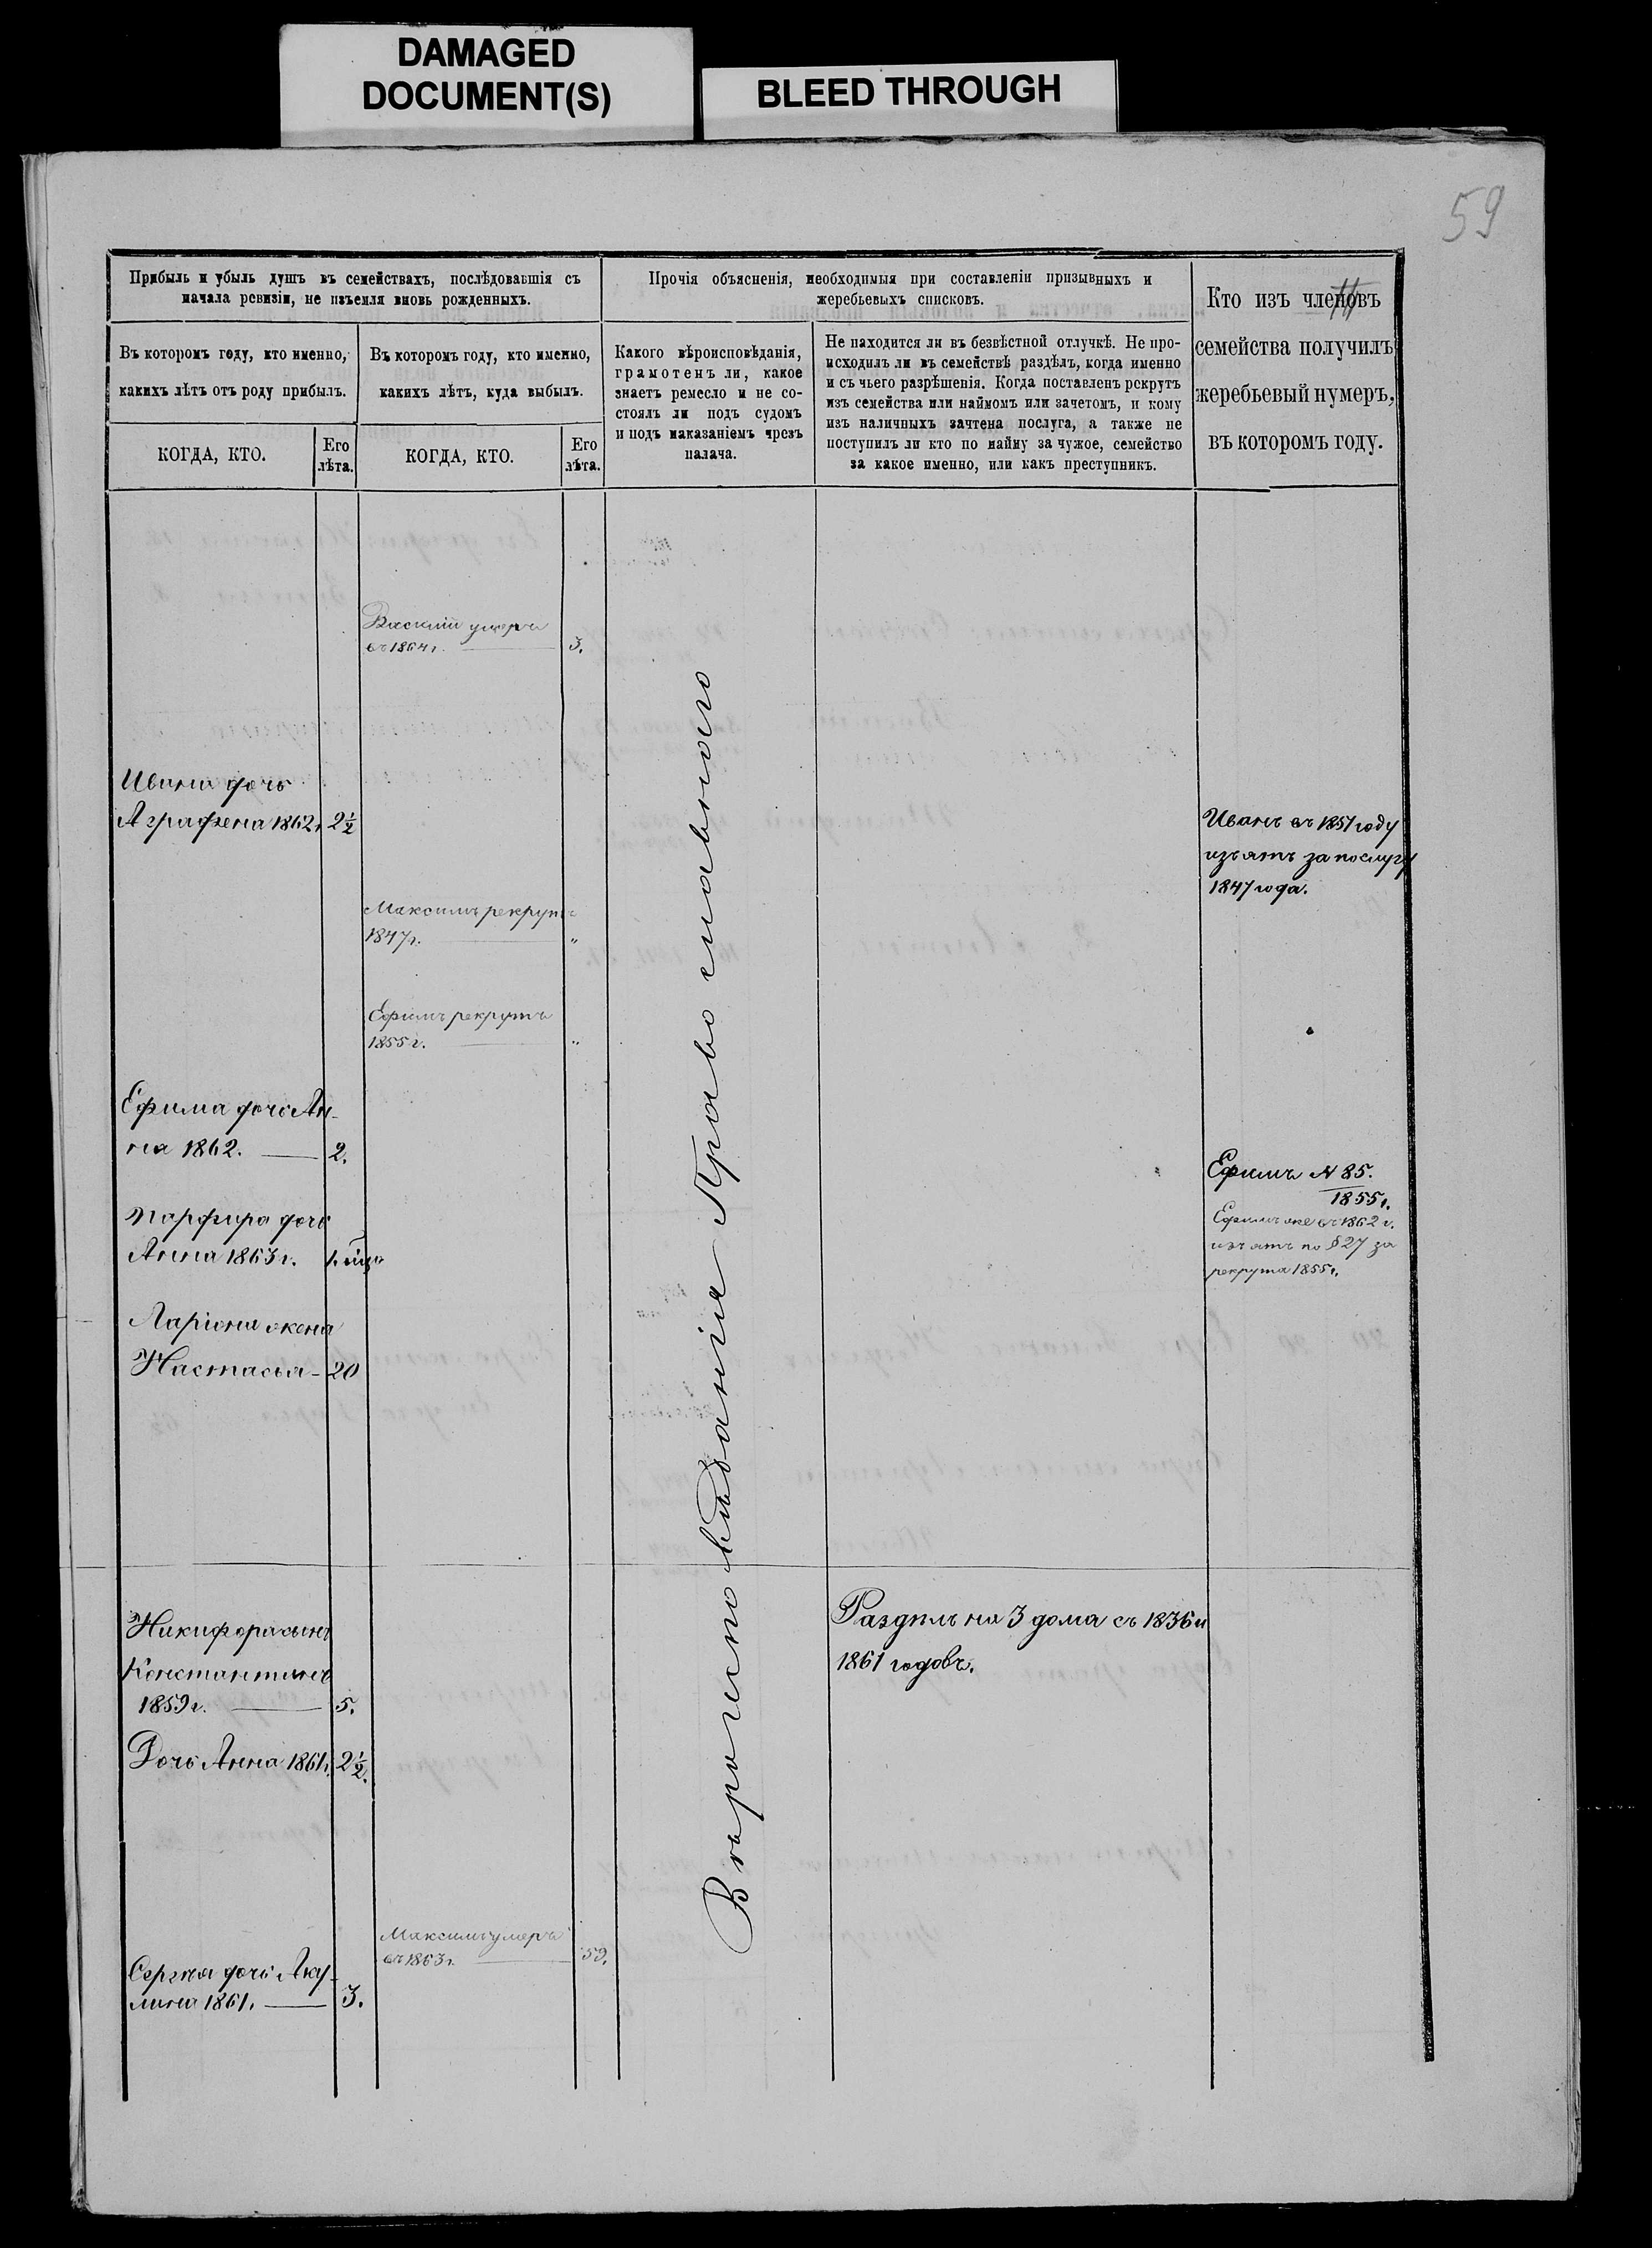 DAMAGED
DOCUMENT(S)
BLEED THROUGH
59
Прибыль и убыль душъ въ семействахъ, послѣдовавшія съ
начала ревизіи, не изъемля вновь рожденныхъ.
Прочія объясненія, необходимыя при составленіи призывныхъ и
жеребьевыхъ списковъ.
Кто изъ членовъ
семейства получилъ
жеребьевый нумеръ,
въ которомъ году.
Въ которомъ году, кто именно,
какихъ лѣтъ отъ роду прибылъ.
Въ которомъ году, кто именно,
какихъ лѣтъ, куда выбылъ.
Какого вѣроисповѣданія,
грамотенъ ли, какое
знаетъ ремесло и не со-
стоялъ ли подъ судомъ
и подъ наказаніемъ чрезъ
палача.
Не находится ли въ безвѣстной отлучкѣ. Не про-
исходилъ ли въ семействѣ раздѣлъ, когда именно
и съ чьего разрѣшенія. Когда поставленъ рекрутъ
изъ семейства или наймомъ или зачетомъ, и кому
изъ наличныхъ зачтена послуга, а также не
поступилъ ли кто по найму за чужое, семейство
за какое именно, или какъ преступникъ.
КОГДА, КТО.
Его
лѣта.
КОГДА, КТО.
Его
лѣта.
Василій умеръ
въ 1864 г. 3.
Ивана дочь
Аграфена 1862 г. 2½
Иванъ въ 1857 году
изъятъ за послугу
1847 года.
Максимъ рекрутъ
1847 г. "
Ефимъ рекрутъ
1855 г. "
Ефима дочь Ан-
на 1862. 2.
Ефимъ N 85.
1855 г.
Ефимъ же въ 1862 г.
изъятъ по § 27 за
рекрута 1855 г.
Парфира дочь
Анна 1863 г. 1.
Ларіона жена
Настасья - 20
Вѣроисповѣданія Православного
Никифора сынъ
Константинъ
1859 г. 5.
Раздѣлъ на 3 дома съ 1836 и
1861 годовъ.
Дочь Анна 1861 г. 2½.
Максимъ умеръ
въ 1863 г. 59.
Сергѣя дочь Аку-
лина 1861. 3.